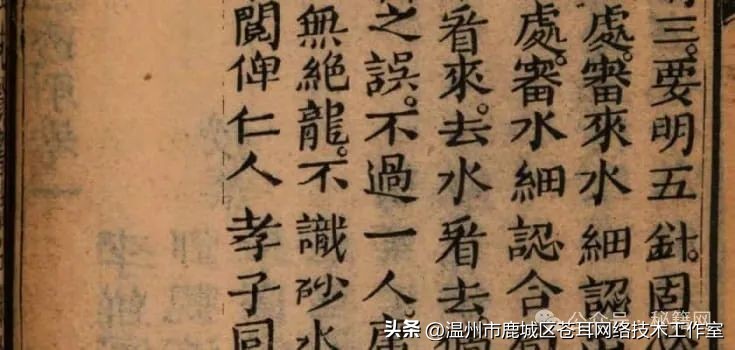 三。要明五針。固
處。審來水細認
處。審水細認合
看來。去水看去
之誤。不過一人。
無絕龍。不識砂水
閱俾仁人孝子同
公众号 秘籍网
头条 @温州市鹿城区苍耳网络技术工作室